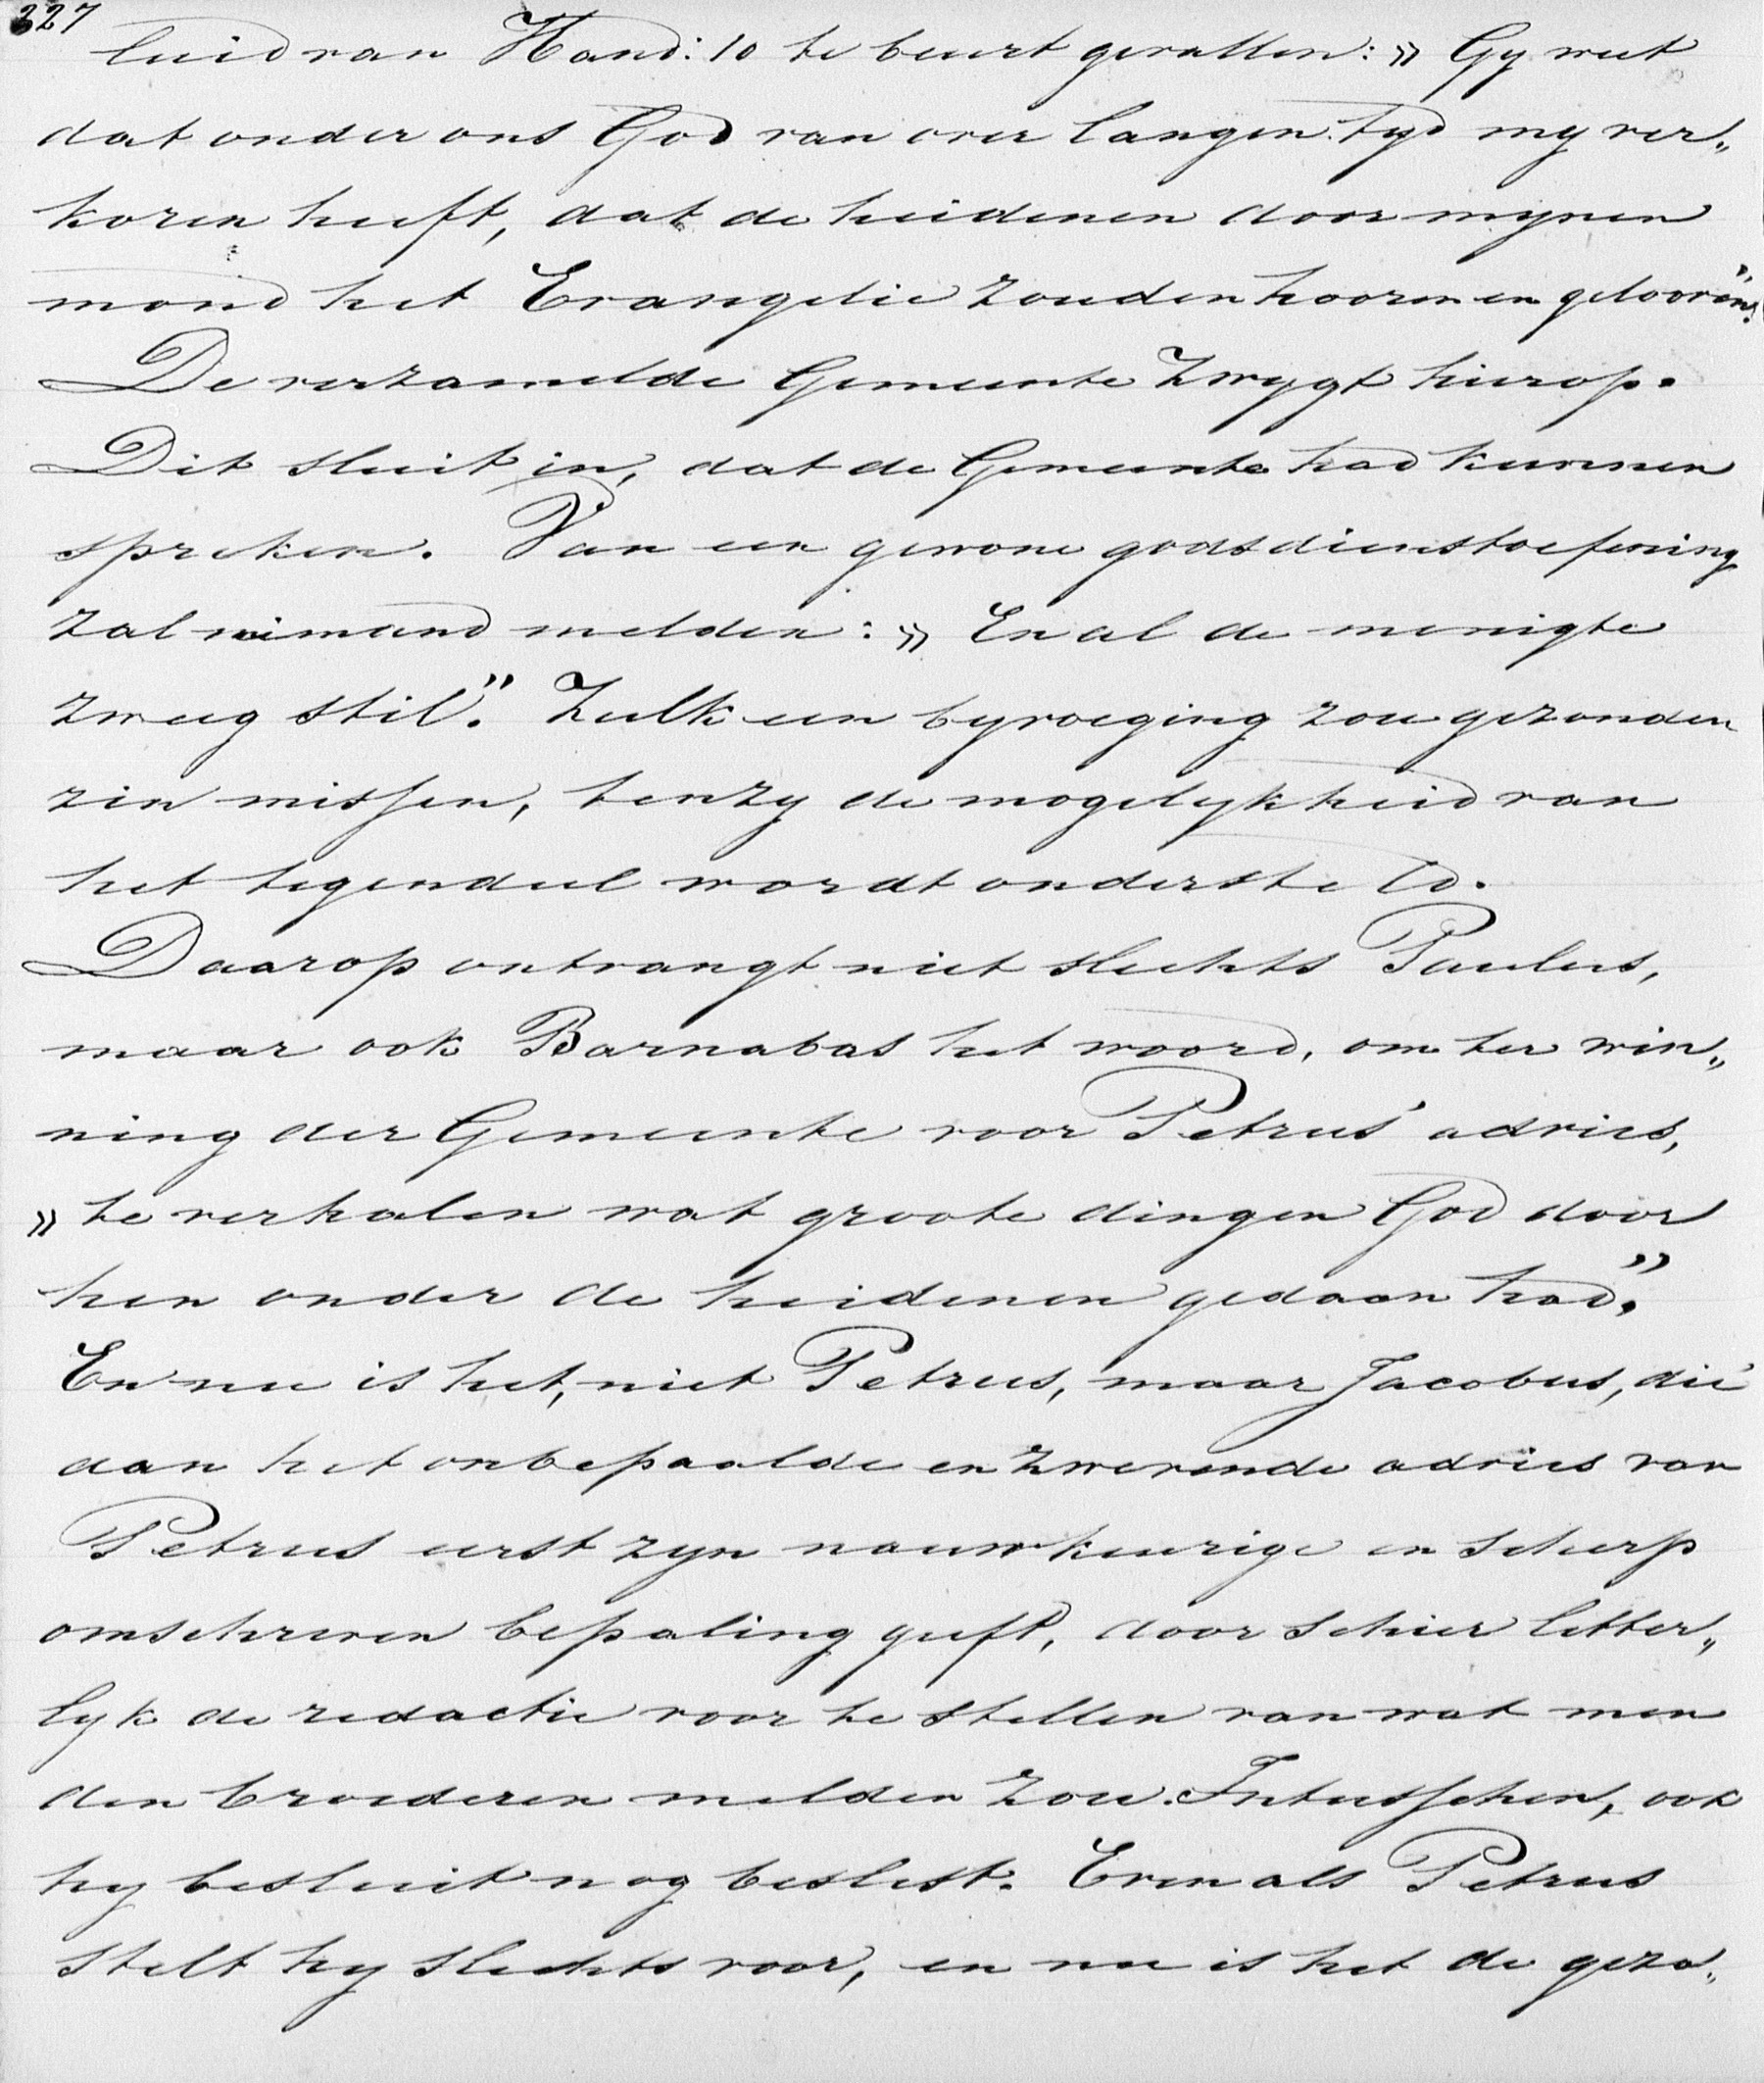 327
luid van Hand: 10 te beurt gevallen: „Gy weet
dat onder ons God van over langen tyd my ver„
koren heeft, dat de heidenen door mynen
mond het Evangelie zouden hooren en gelooven”.
De verzamelde Gemeente zwygt hierop.
Dit sluit in, dat de Gemeente had kunnen
spreken. Van een gewone godsdienstoefening
zal niemand melden: „En al de menigte
zweeg stil”. Zulk een byvoeging zou gezonden
zin missen, tenzy de mogelykheid van
het tegendeel wordt ondersteld.
Daarop ontvangt niet slechts Paulus,
maar ook Barnabas het woord, om ter win„
ning der Gemeente voor Petrus' advies,
„te verhalen wat groote dingen God door
hen onder de heidenen gedaan had”.
En nu is het, niet Petrus, maar Jacobus, die
aan het onbepaalde en zwevende advies van
Petrus eerst zyn nauwkeurige en scherp
omschreven bepaling geeft, door schier letter„
lyk de redactie voor te stellen van wat men
den broederen melden zou. Intusschen, ook
hy besluit nog beslist. Even als Petrus
stelt hy slechts voor, en nu is het de geza„